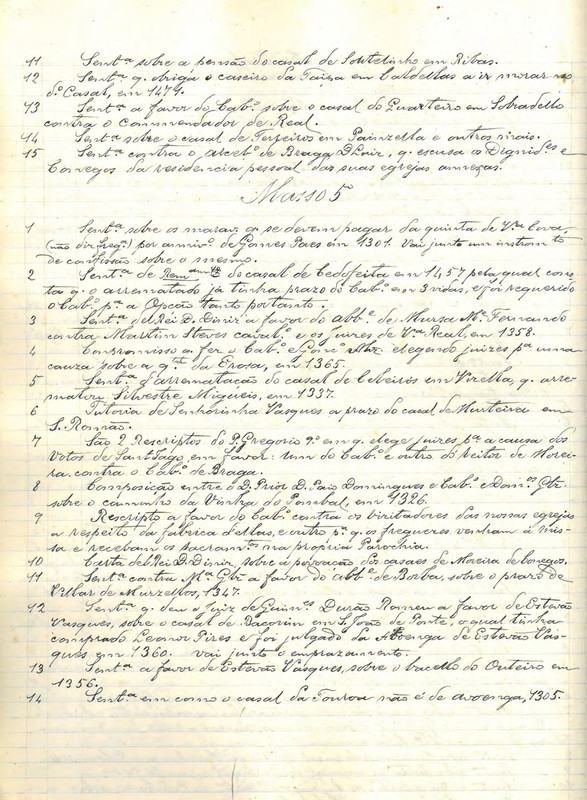 11 Sent.ª sobre a pensão do casal de Soutelinho em Ribas.
12 Sent.ª q. obriga o caseiro da Taipa em Caldellas a ir morar no
d.º Casal, em 1474.
13 Sent.ª a favor do Cab.º sobre o casal do Quarteiro em Sobradello
contra o Commendador de Real.
14 Sent.ª sobre o casal de Terfeiros em Painzella e outros mais.
15 Sent.ª contra o arceb.º de Braga D. Luiz, q. escusa os Dignid.es e
Conegos da residencia pessoal das suas egrejas annexas.
Masso 5
1 Sent.ª sobre os marav. q. se devem pagar da quinta de V.ª Cova,
(não diz freg.ª) por anniv.º de Gomes Paes em 1301. Vai junto um instrom.to
de confissão sobre o mesmo.
2 Sent.ª de Rem do casal de Cedofeita em 1457 pela qual cons-
ta q. o arrematado já tinha prazo do Cab.º em 3 vidas, e foi requerido
o Cab.º p.ª a Opção tanto portanto.
3 Sent.ª del Rei D. Diniz a favor do abb.º de Mursa M.el Fernando
contra Martim Steves caval.º e os juizes de V.ª Real, em 1358.
4 Compromisso q. fez o Cab.º e Gonç. elegendo juizes p.ª uma
cauza sobre a q.ta da Erosa, em 1365.
5 Sent.ª d'arrematação do casal de Cibeiros em Vizella, q. arre-
matou Silvestre Migueis, em 1337.
6 Tutoria de Senhorinha Vasques a prazo do casal de Murteira em
S. Romão.
7 São 2 Rescriptos do P. Gregorio 9.º em q. elege juizes p.ª a causa dos
Votos de Sant'Iago, em favor: um do Cab.º e outro do Reitor de Morei-
ra, contra o Cab.º de Braga.
8 Composição entre o D. Prior D. Paio Domingues e Cab.º e Dom.os Glz.
sobre o caminho da Vinha do Pombal, em 1326.
9 Rescripto a favor do Cab.º contra os vizitadores das nossas egrejas
a respeito da fabrica d'ellas, e outro p.ª q. os freguezes venham á mis-
sa e recebam os sacram.tos na propria Parochia.
10 Carta de Rei D. Diniz, sobre a povoação dos casaes de Moreira de Conegos.
11 Sent.ª contra M.ª Glz a favor do abb.º de Borba, sobre o prazo de
Villar de Murzellos, 1347.
12 Sent.ª q. deu o Juiz de Guim.es Durão Romeu a favor de Estevão
Vasques, sobre o casal de Bacorim em S. João de Ponte, o qual tinha
comprado Leonor Pires e foi julgado da Avoenga de Estevão Vas-
ques em 1360. Vai junto o emprazamento.
13 Sent.ª a favor de Estevão Vasques, sobre o bacello do Outeiro em
1356.
14 Sent.ª em como o casal da Touroa não é de avoenga, 1305.